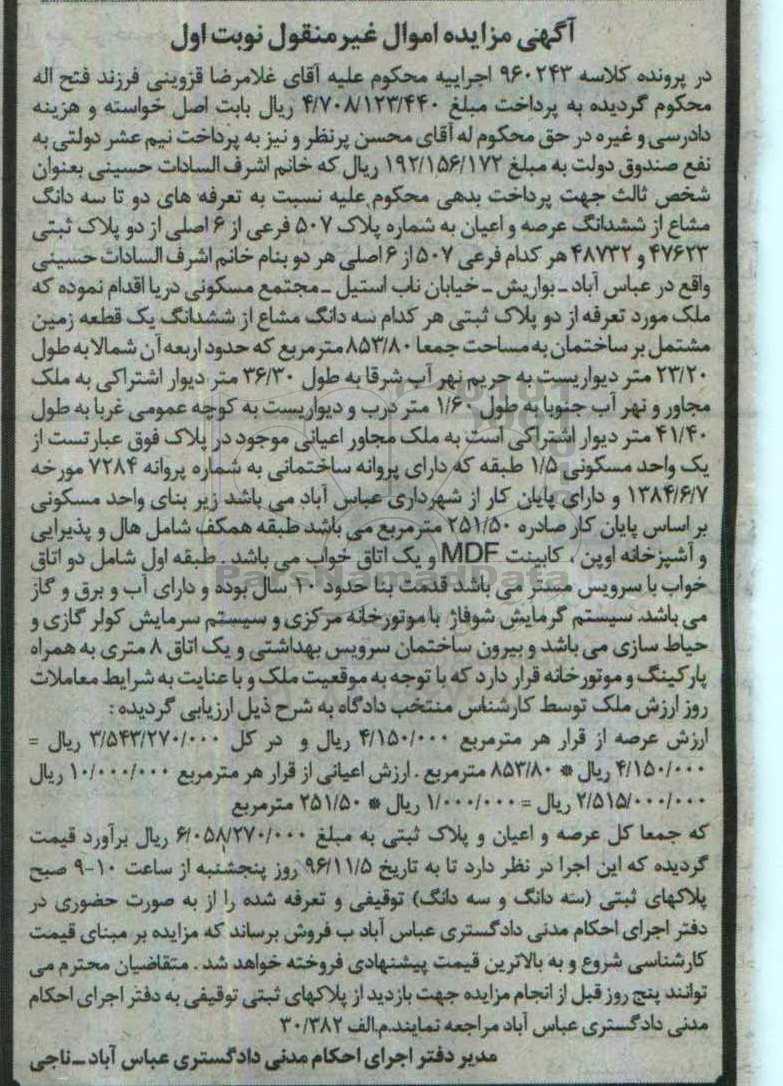 آگهی مزایده اموال غیر منقول نوبت اول
در پرونده کلاسه ۹۶۰۲۴۳ اجراییه محکوم علیه آقای غلامرضا قزوینی فرزند فتح اله
محکوم گردیده به پرداخت مبلغ ۴/۷۰۸/۱۲۳/۴۴۰ ریال بابت اصل خواسته و هزینه
دادرسی و غیره در حق محکوم له آقای محسن پرنظر و نیز به پرداخت نیم عشر دولتی به
نفع صندوق دولت به مبلغ ۱۹۲/۱۵۶/۱۷۲ ریال که خانم اشرف السادات حسینی بعنوان
شخص ثالث جهت پرداخت بدهی محکوم علیه نسبت به تعرفه های دو تا سه دانگ
مشاع از ششدانگ عرصه و اعیان به شماره پلاک ۵۰۷ فرعی از ۶ اصلی از دو پلاک ثبتی
۴۷۶۲۳ و ۴۸۷۳۲ هر کدام فرعی ۵۰۷ از ۶ اصلی هر دو بنام خانم اشرف السادات حسینی
واقع در عباس آباد ـ بواریش ـ خیابان ناب استیل ـ مجتمع مسکونی دریا اقدام نموده که
ملک مورد تعرفه از دو پلاک ثبتی هر کدام سه دانگ مشاع از ششدانگ یک قطعه زمین
مشتمل بر ساختمان به مساحت جمعا ۸۵۳/۸۰ متر مربع که حدود اربعه آن شمالا به طول
۲۳/۲۰ متر دیواریست به حریم نهر آب شرقا به طول ۳۶/۳۰ متر دیوار اشتراکی به ملک
مجاور و نهر آب جنوبا به طول ۱/۶۰ متر درب و دیواریست به کوچه عمومی غربا به طول
۴۱/۴۰ متر دیوار اشتراکی است به ملک مجاور اعیانی موجود در پلاک فوق عبارتست از
یک واحد مسکونی ۱/۵ طبقه که دارای پروانه ساختمانی به شماره پروانه ۷۲۸۴ مورخه
۱۳۸۴/۶/۷ و دارای پایان کار از شهرداری عباس آباد می باشد زیر بنای واحد مسکونی
بر اساس پایان کار صادره ۲۵۱/۵۰ مترمربع می باشد طبقه همکف شامل هال و پذیرایی
و آشپزخانه اوپن ، کابینت MDF و یک اتاق خواب می باشد . طبقه اول شامل دو اتاق
خواب با سرویس مستر می باشد قدمت بنا حدود ۱۰ سال بوده و دارای آب و برق و گاز
می باشد. سیستم گرمایش شوفاژ با موتورخانه مرکزی و سیستم سرمایش کولر گازی و
حیاط سازی می باشد و بیرون ساختمان سرویس بهداشتی و یک اتاق ۸ متری به همراه
پارکینگ و موتور خانه قرار دارد که با توجه به موقعیت ملک و با عنایت به شرایط معاملات
روز ارزش ملک توسط کارشناس منتخب دادگاه به شرح ذیل ارزیابی گردیده :
ارزش عرصه از قرار هر مترمربع ۴/۱۵۰/۰۰۰ ریال و در کل ۳/۵۴۳/۲۷۰/۰۰۰ ریال =
۴/۱۵۰/۰۰۰ ریال * ۸۵۳/۸۰ مترمربع . ارزش اعیانی از قرار هر مترمربع ۱۰/۰۰۰/۰۰۰ ریال
۲/۵۱۵/۰۰۰/۰۰۰ ریال = ۱/۰۰۰/۰۰۰ ریال * ۲۵۱/۵۰ مترمربع
که جمعا کل عرصه و اعیان و پلاک ثبتی به مبلغ ۶/۰۵۸/۲۷۰/۰۰۰ ریال برآورد قیمت
گردیده که این اجرا در نظر دارد تا به تاریخ ۹۶/۱۱/۵ روز پنجشنبه از ساعت ۱۰-۹ صبح
پلاکهای ثبتی (سه دانگ و سه دانگ) توقیفی و تعرفه شده را از به صورت حضوری در
دفتر اجرای احکام مدنی دادگستری عباس آباد ب فروش برساند که مزایده بر مبنای قیمت
کارشناسی شروع و به بالاترین قیمت پیشنهادی فروخته خواهد شد . متقاضیان محترم می
توانند پنج روز قبل از انجام مزایده جهت بازدید از پلاکهای ثبتی توقیفی به دفتر اجرای احکام
مدنی دادگستری عباس آباد مراجعه نمایند.م.الف ۳۰/۳۸۲
مدیر دفتر اجرای احکام مدنی دادگستری عباس آباد ـ ناجی
ParsNamadData